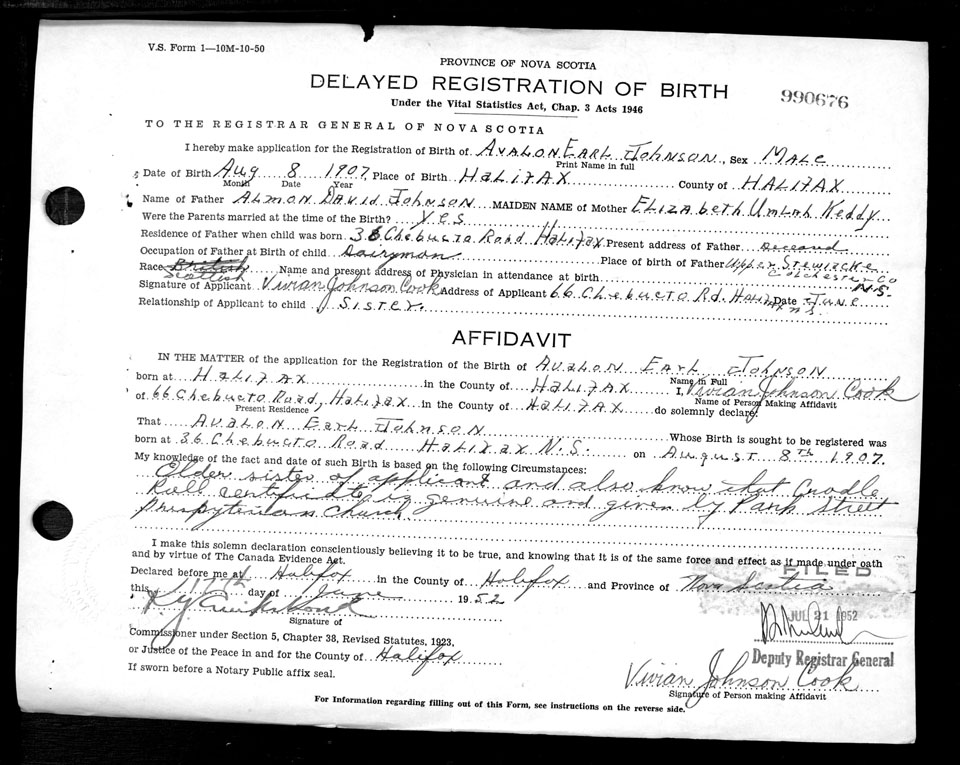 V.S. Form 1—10M-10-50
PROVINCE OF NOVA SCOTIA
DELAYED REGISTRATION OF BIRTH
990676
Under the Vital Statistics Act, Chap. 3 Acts 1946
TO THE REGISTRAR GENERAL OF NOVA SCOTIA
I hereby make application for the Registration of Birth of AVALON EARL JOHNSON, Sex MALE
Print Name in full
Date of Birth Aug 8 1907 Place of Birth HALIFAX County of HALIFAX
Month Date Year
Name of Father ALMON DAVID JOHNSON MAIDEN NAME of Mother ELIZABETH UMLAH KEDDY
Were the Parents married at the time of the Birth? Yes
Residence of Father when child was born 36 Chebucto Road Halifax Present address of Father Deceased
Occupation of Father at Birth of child Dairyman Place of birth of Father Upper Stewiacke
Colchester Co
Race British Name and present address of Physician in attendance at birth N.S.
Scottish
Signature of Applicant Vivian Johnson Cook Address of Applicant 66 Chebucto Rd. Halifax Date June
N.S.
Relationship of Applicant to child Sister.
AFFIDAVIT
IN THE MATTER of the application for the Registration of the Birth of AVALON EARL JOHNSON
Name in Full
born at HALIFAX in the County of HALIFAX I, Vivian Johnson Cook
Name of Person Making Affidavit
of 66 Chebucto Road, Halifax in the County of HALIFAX do solemnly declare:
Present Residence
That AVALON EARL JOHNSON Whose Birth is sought to be registered was
born at 36 Chebucto Road HALIFAX N.S. on August 8TH 1907.
My knowledge of the fact and date of such Birth is based on the following Circumstances:
Elder sister of applicant and also know that Cradle
Roll certificate is genuine and given by Park Street
Presbyterian Church.
I make this solemn declaration conscientiously believing it to be true, and knowing that it is of the same force and effect as if made under oath
and by virtue of The Canada Evidence Act.
FILED
Declared before me at Halifax in the County of Halifax and Province of Nova Scotia
this day of June 1952
JUL 21 1952
Signature of
Commissioner under Section 5, Chapter 38, Revised Statutes, 1923,
or Justice of the Peace in and for the County of Halifax
Deputy Registrar General
If sworn before a Notary Public affix seal.
Vivian Johnson Cook
Signature of Person making Affidavit
For Information regarding filling out of this Form, see instructions on the reverse side.